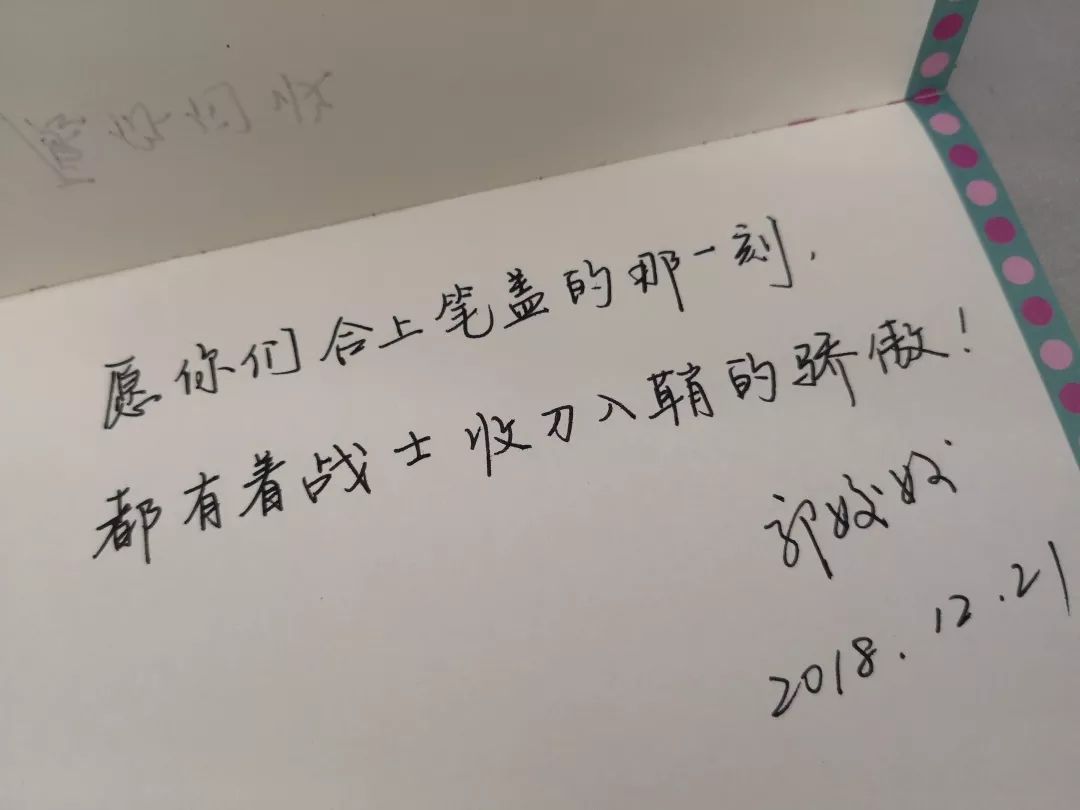 愿你们合上笔盖的那一刻，
都有着战士收刀入鞘的骄傲！
郭姣姣
2018.12.21